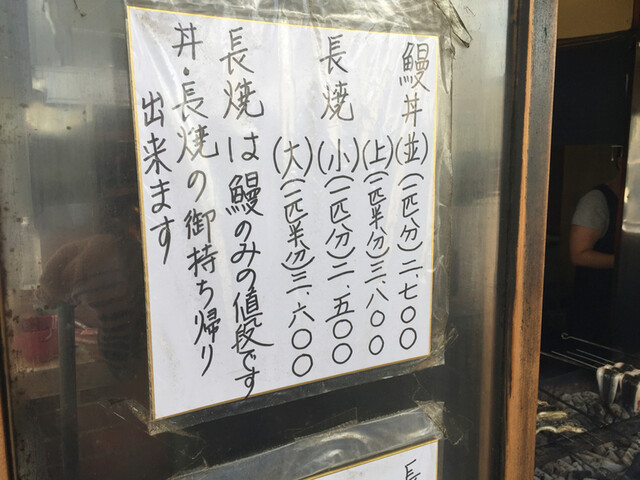 鰻丼(並)(一匹分)二、七〇〇
(上)(一匹半分)三、八〇〇
長焼(小)(一匹分)二、五〇〇
(大)(一匹半分)三、六〇〇
長焼は鰻のみの値段です
丼・長焼の御持ち帰り
出来ます
長